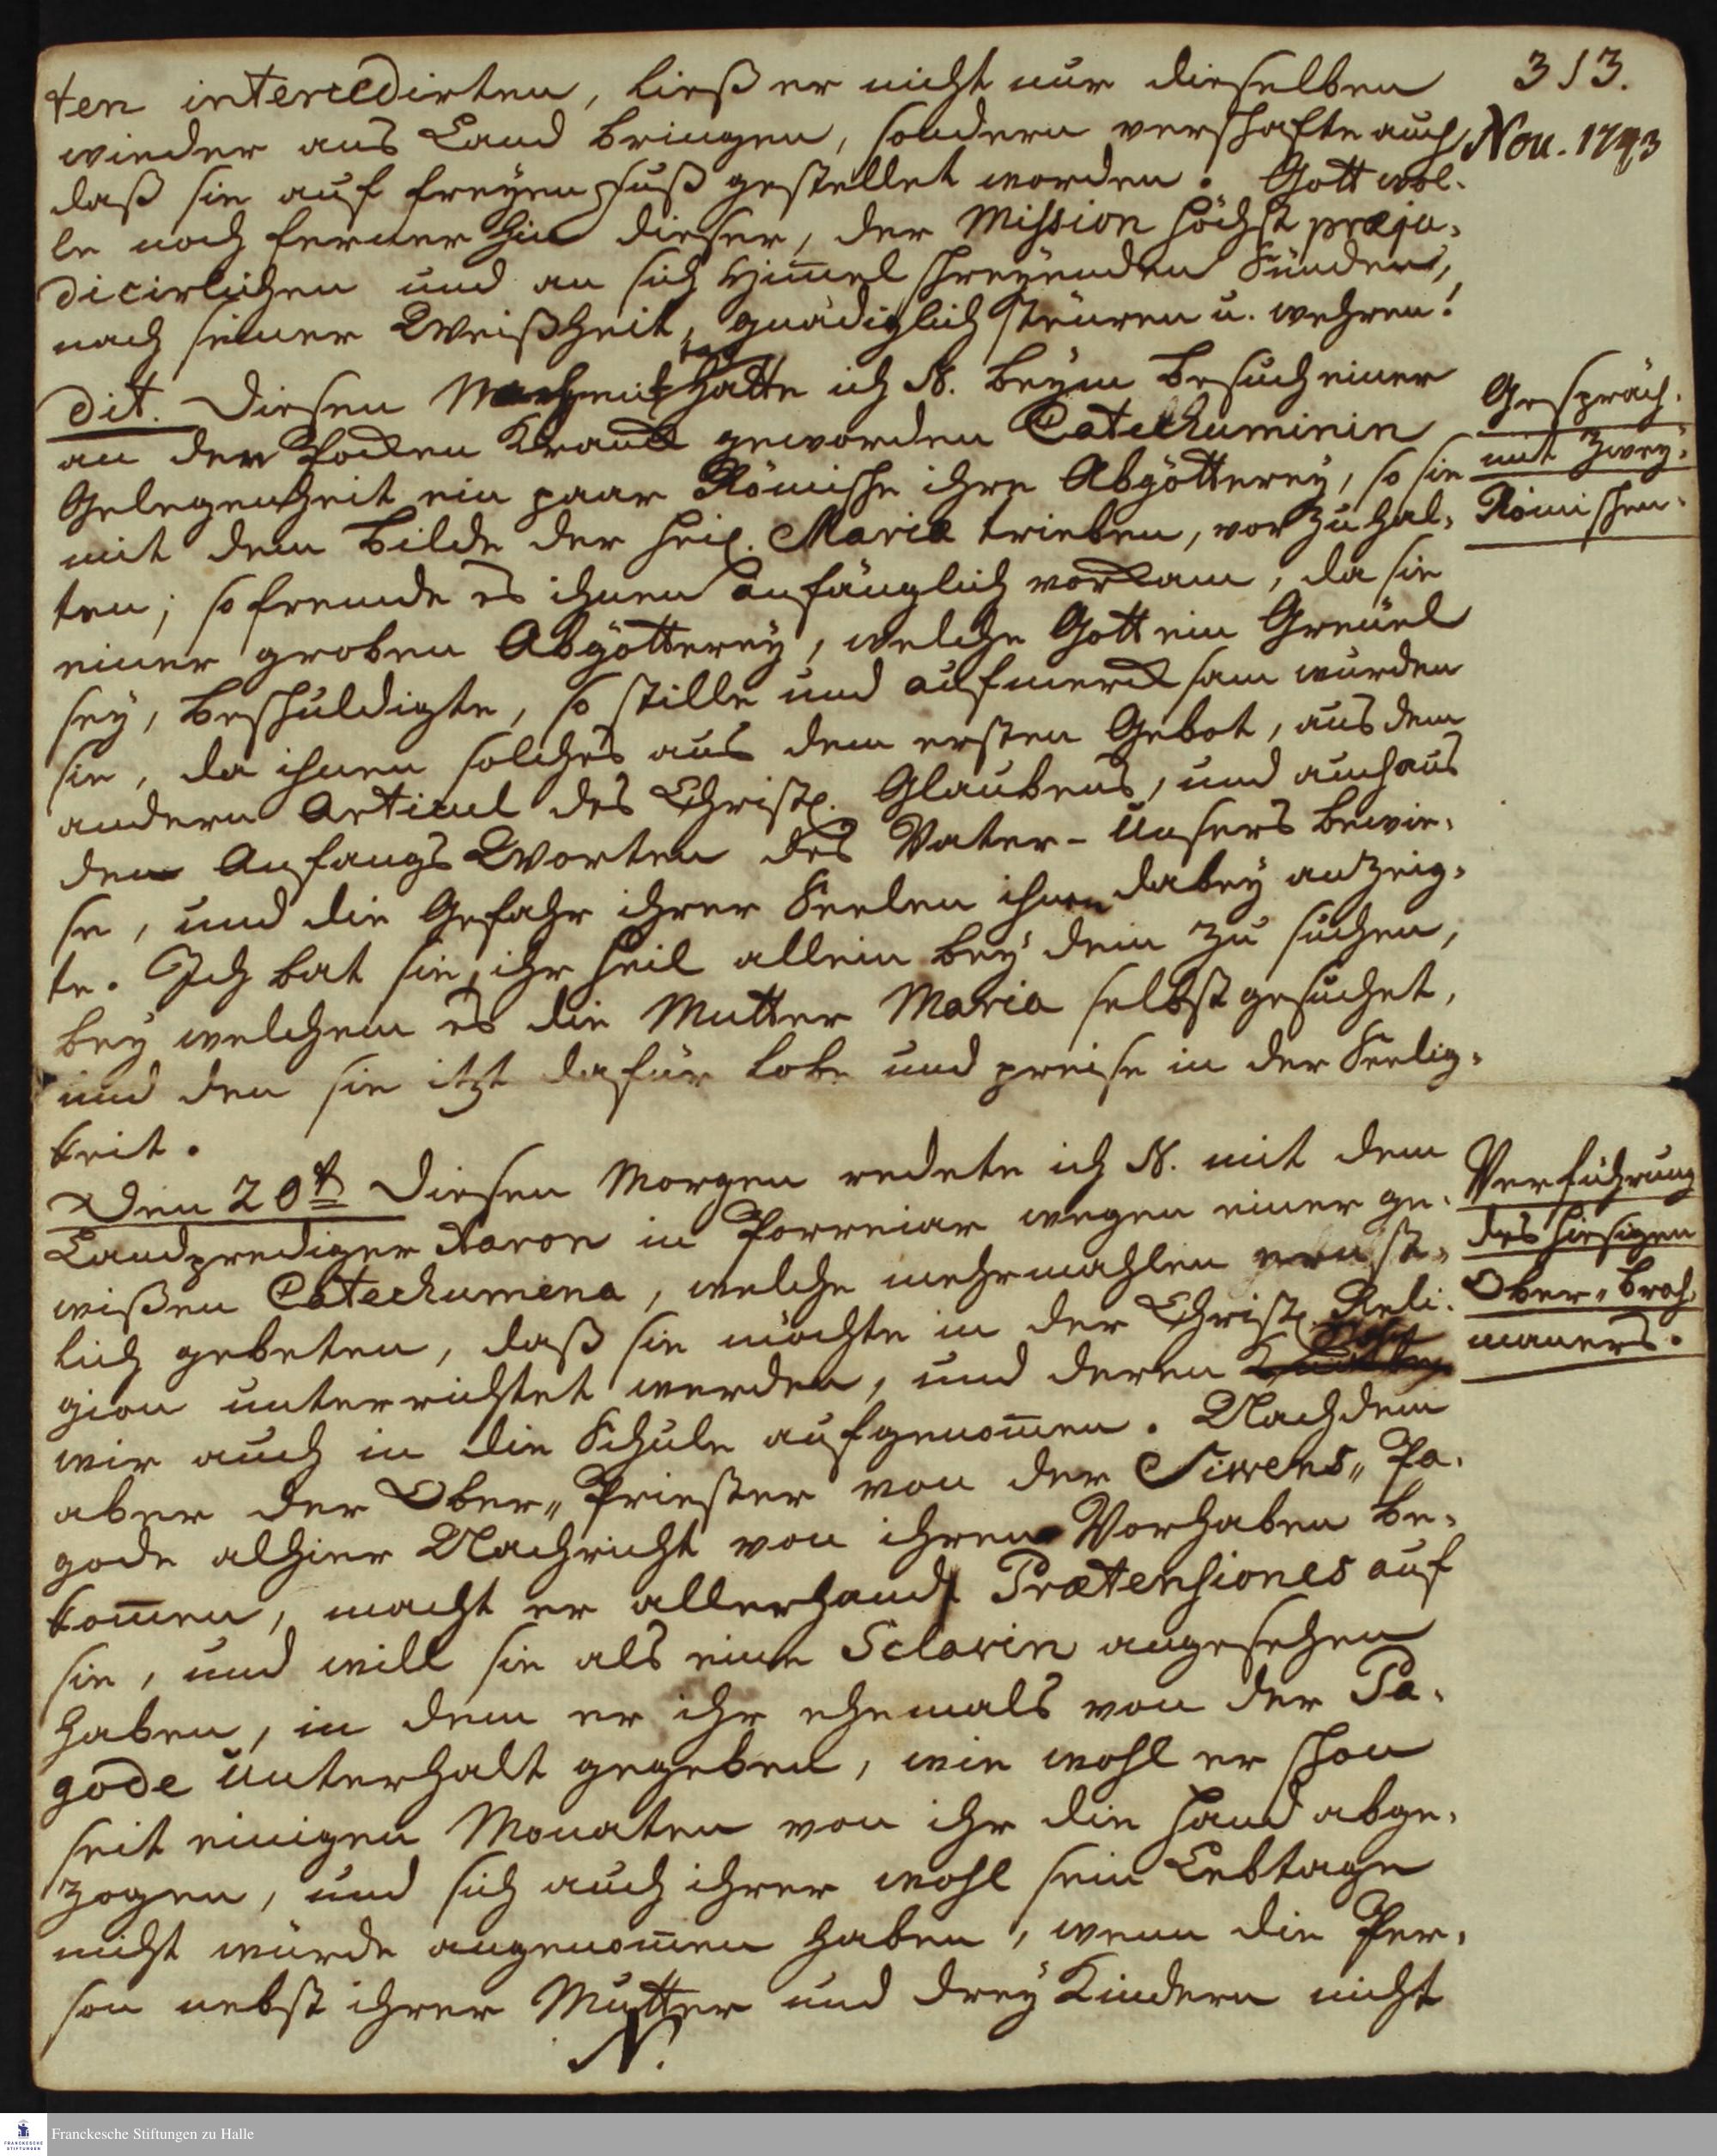 313.
Nov. 1743
ten intercedirten, ließ er nicht nur dieselben
wieder ans Land bringen, sondern verschafte auch
daß sie auf freyen fuß gestellet worden. Gott wol-
le noch ferner hin dieser, der Mission höchst præju-
dicirlichen und an sich Himmel schreyenden Sünden,
nach seiner Weißheit, gnädiglich steuren u. wehren!
dit. Diesen hatte ich N. beym Besuch einer
an den Pocken Kranck geworden Catechuminin
Gelegenheit ein paar Römische ihre Abgötterey, so sie
mit dem Bilde der heil. Maria trieben, vorzuhal-
ten; so fremde es ihnen anfänglich vorkam, da sie
einer groben Abgötterey, welche Gott ein Greuel
sey, beschuldigte, so stille und aufmercksam wurden
sie, da ihnen solches aus dem ersten Gebot, aus dem
andern Articul des Christl. Glaubens, und auch aus
den Anfangs Worten des Vater-Unsers bewie-
se, und die Gefahr ihrer Seelen ihnen dabey anzeig-
te. Ich bat sie, ihr Heil allein bey dem zu suchen,
bey welchem es die Mutter Maria selbst gesuchet,
und den sie itzt dafür lobe und preise in der Seelig-
keit.
Gespräch
mit zwey
Römischen.
Den 20t Diesen Morgen redete ich N. mit dem
Landprediger Aaron in Porreiar wegen einer ge-
wißen Catechumena, welche mehrmahlen ernst-
lich gebeten, daß sie möchte in der Christl. Reli-
gion unterrichtet werden, und deren
wir auch in die Schule aufgenommen. Nachdem
aber der Ober-Priester von der Siwens-Pa-
gode alhier Nachricht von ihren Vorhaben be-
kommen, macht er allerhand Prætensiones auf
sie, und will sie als eine Sclavin angesehen
haben, in dem er ihr ehemals von der Pa-
gode Unterhalt gegeben, wie wohl er schon
seit einigen Monaten von ihr die Hand abge-
zogen, und sich auch ihrer wohl sein Lebtage
nicht würde angenommen haben, wenn die Per-
son nebst ihrer Mutter und drey Kindern nicht
N.
Verführung
des hiesigen
Ober-Brah-
maners.
Franckesche Stiftungen zu Halle